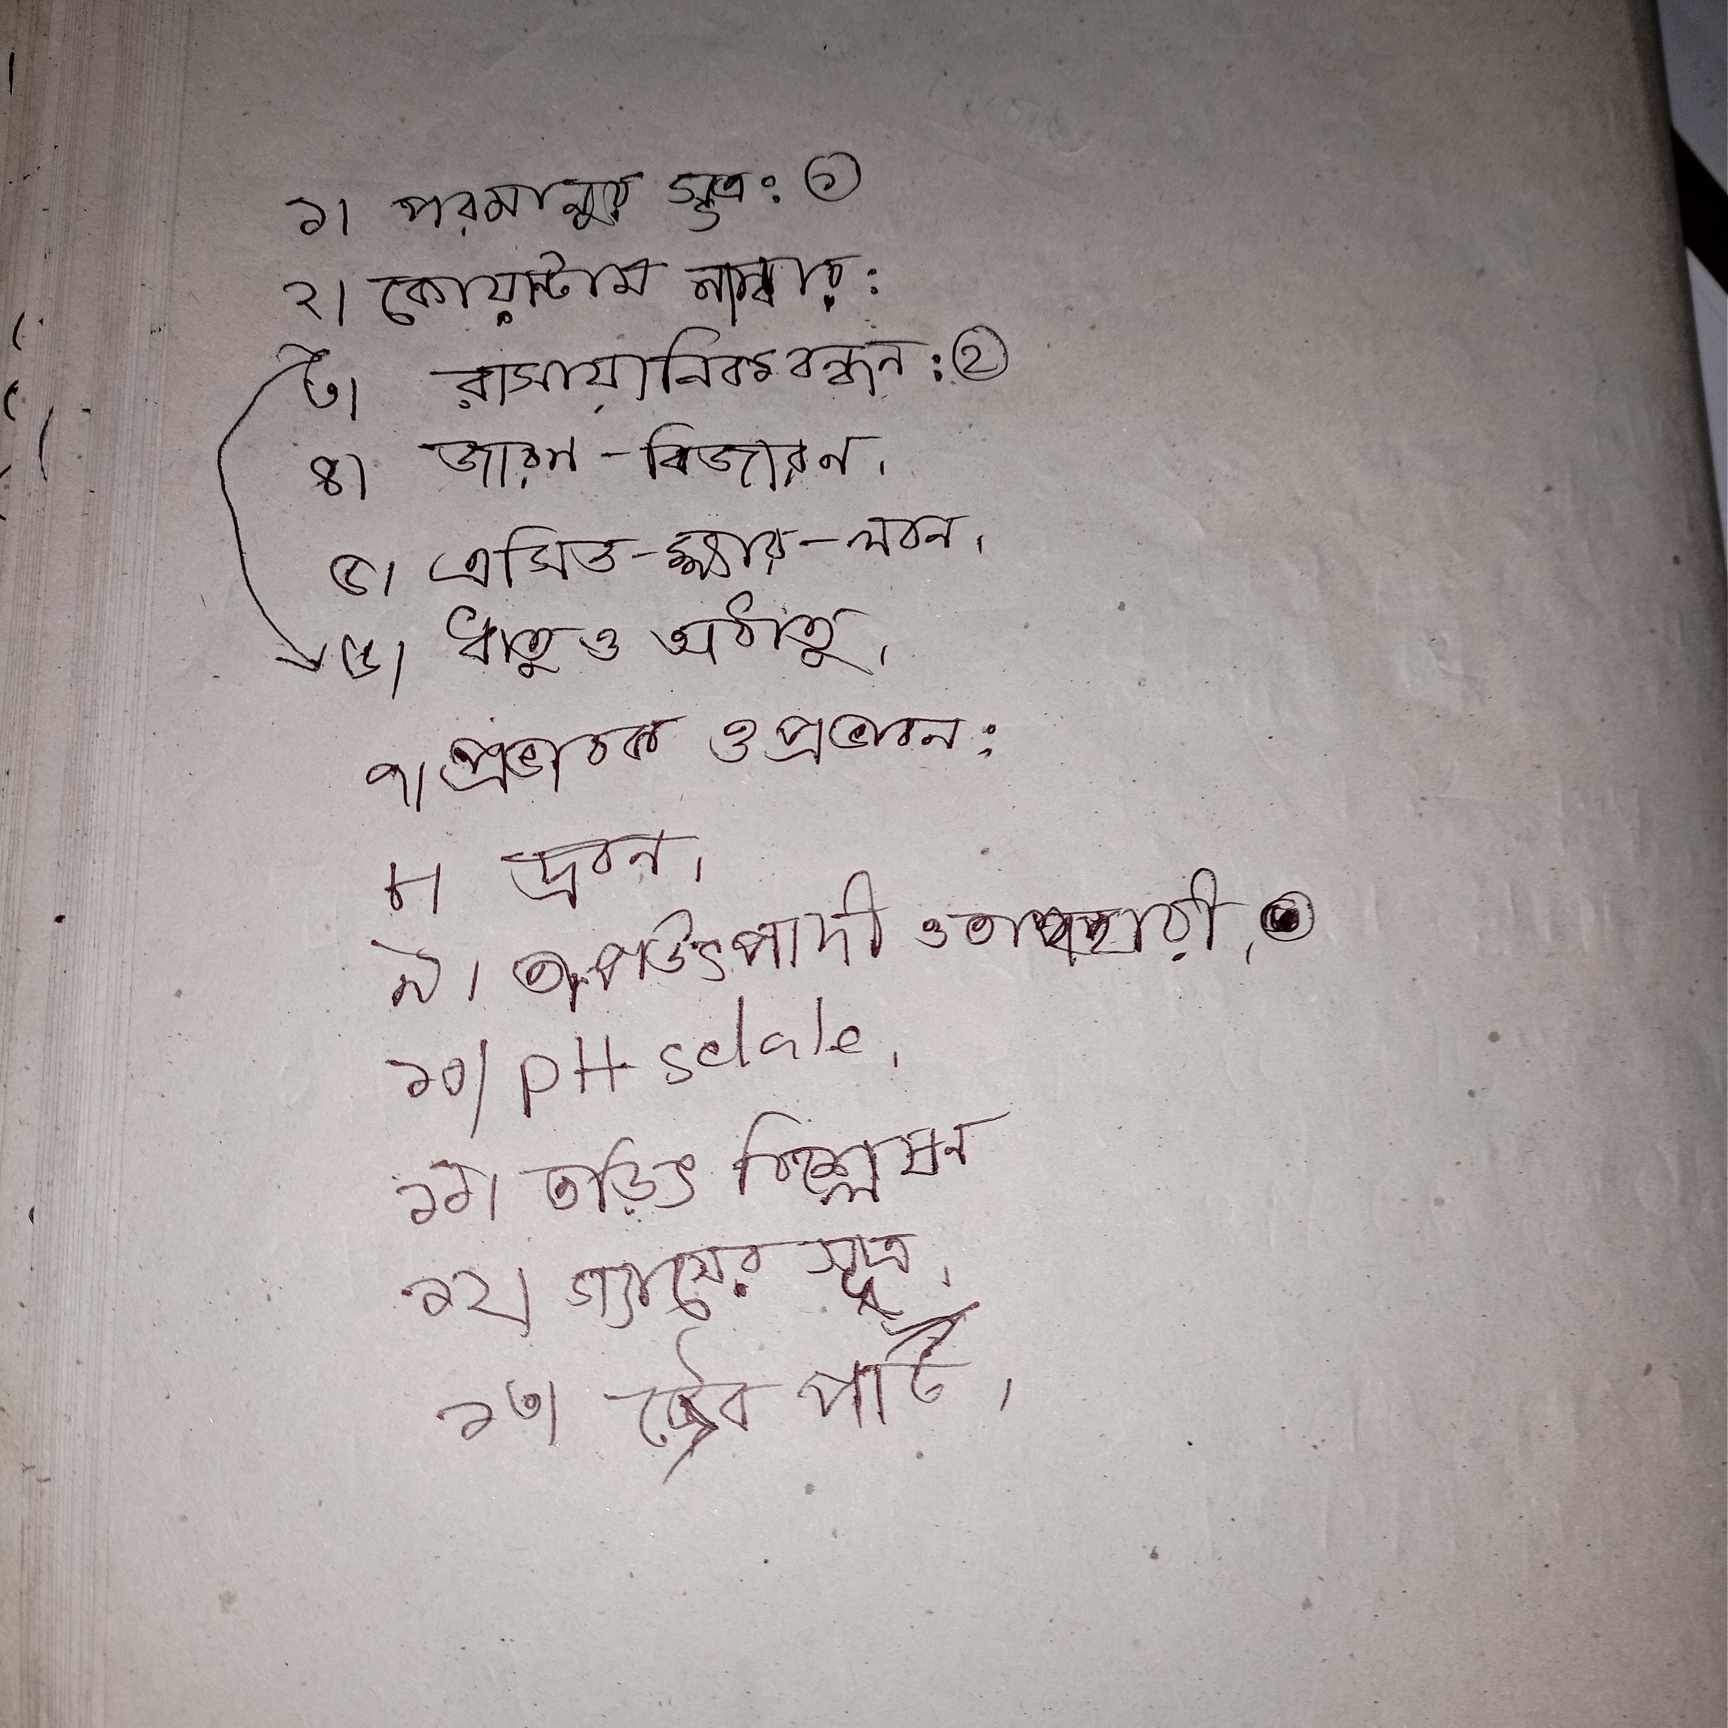 ১। পরমানুর সূত্র: ①
২। কোয়ান্টাম নাম্বার:
৩। রাসায়ানিক বন্ধন: ②
৪। জারন - বিজারন।
৫। এসিড - ক্ষার - লবন।
৬। ধাতু ও অধাতু।
৭। প্রভাবক ও প্রভাবন:
৮। দ্রবন।
৯। তাপউৎপাদী ও তাপহারী।
১০। pH sclale.
১১। তড়িৎ বিশ্লেষন
১২। গ্যাসের সূত্র।
১৩। জৈব পার্ট।